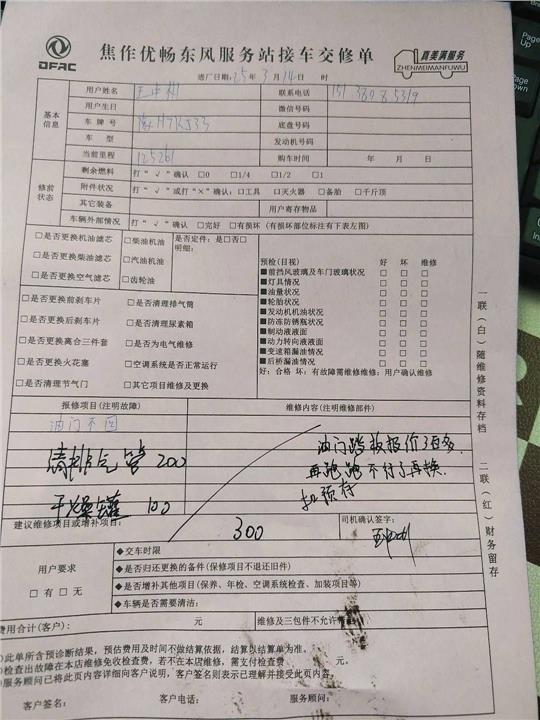 DFAC
焦作优畅东风服务站接车交修单
真美满服务
ZHENMEIMANFUWU
进厂日期: 25年3月14日 时
基本信息
用户姓名
联系电话
用户生日
微信号码
车牌号
底盘号码
车 型
发动机号码
当前里程 125261
购车时间 年 月 日
修前状态
剩余燃料 打“√”确认 □0 □1/4 □1/2 □1
附件状况 打“√”或打“×”确认:□工具 □灭火器 □备胎 □千斤顶
其它装备
用户寄存物品
车辆外部情况 打“√”确认 □完好 □有损坏 (有损坏部位标注有下表左图)
□是否更换机油滤芯 □柴油机油 是否定件: 是□否□
明细:
□是否更换柴油滤芯 □汽油机油
□是否更换空气滤芯 □齿轮油
□是否更换前刹车片 □是否清理排气筒
□是否更换后刹车片 □是否清理尿素箱
□是否更换离合三件套 □是否为电气维修
□是否更换火花塞 □空调系统是否正常运行
□是否清理节气门 □其它项目维修及更换
预检(目视) 好 坏 维修
■前挡风玻璃及车门玻璃状况 □ □ □
■灯具情况 □ □ □
■油量状况 □ □ □
■轮胎状况 □ □ □
■发动机机油状况 □ □ □
■防冻防锈瓶状况 □ □ □
■制动液液面 □ □ □
■动力转向液液面 □ □ □
■变速箱漏油情况 □ □ □
■后桥漏油情况 □ □ □
好: 合格 坏: 有故障需维修维修: 用户确认维修
报修项目(注明故障)
维修内容(注明维修部件)
油门不回
清排气管 200
干燥罐 100
油门踏板报价3百多
再跑跑不行了再换
300
建议维修项目或增补项目:
司机确认签字:
用户要求
□有 □无
◆交车时限
◆是否归还更换的备件(保修项目不退还旧件)
◆是否增补其他项目(保养、年检、空调系统检查、加装项目等)
◆车辆是否需要清洁:
费用合计(客户): 元
维修及三包件不允许
)此单所含预诊断结果,预估费用及时间不做结算依据,结算以结算单为准。
)检查出故障在本店维修免收检查费,若不在本店维修,需支付检查费 元。
)服务顾问已将此页内容详细向客户说明,客户签名则表示已理解并接受此页内容。
客户签名: 客户电话: 服务顾问:
一联(白)随维修资料存档
二联(红)财务留存
PgUp
Page
Down